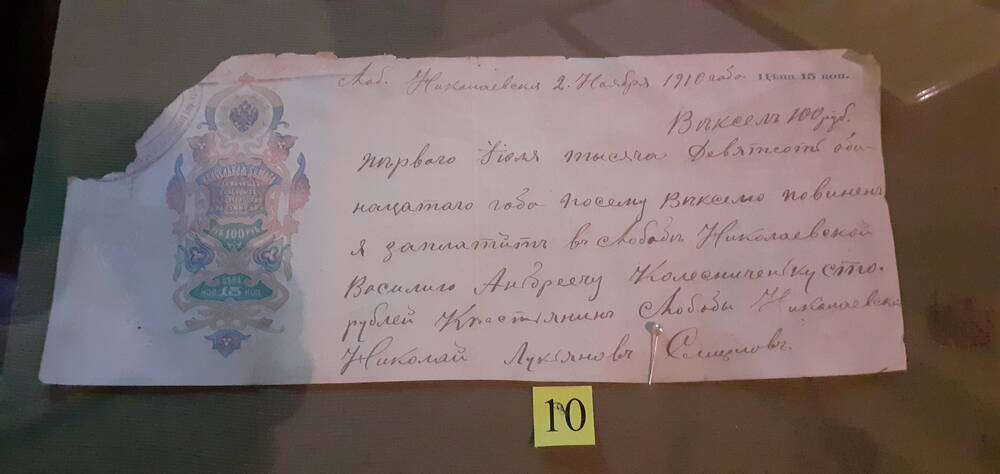 Слоб. Николаевская 2. Ноября 1910 года Цѣна 15 коп.
Вѣксель 100 руб.
Пѣрваго Іюля тысяча Девятсотъ оди-
нацатаго года посему Вѣкселю повиненъ
я заплатить въ Слободѣ Николаевской
Василию Андреечу Колесниченку сто.
рублей Крестянинъ Слободы Николаевско
Николай Лукяновъ
ВЕКСЕЛЬНАЯ БУМАГА
ДО 100 РУБ.
ЦѢНА
15 КОП.
10